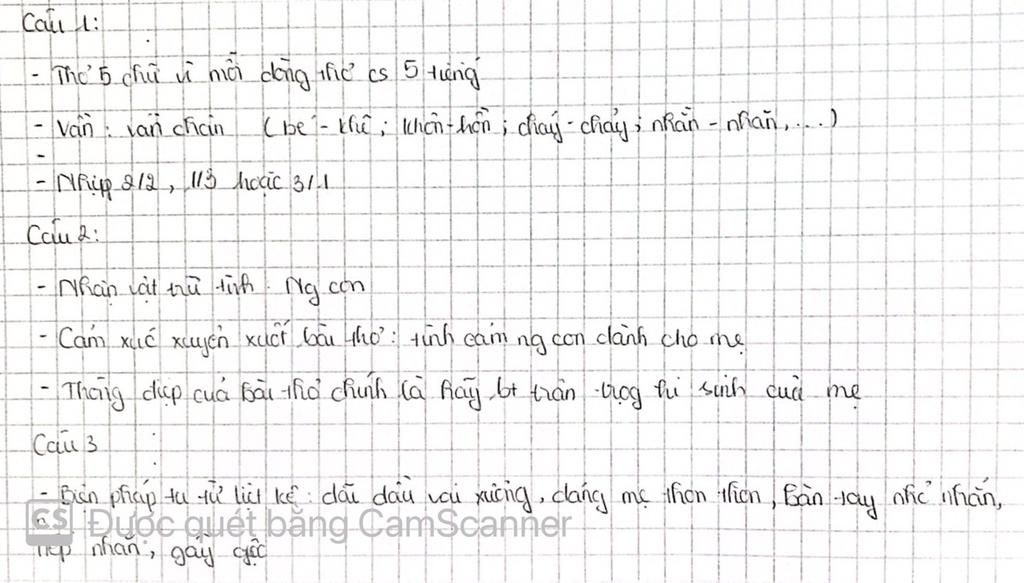 Câu 1:
- Thơ 5 chữ vì mỗi dòng thơ cs 5 tiếng
- Vần: vần chân (bé - khẽ; khôn-hồn; cháy-chảy; nhàn - nhăn,....)
-
- Nhịp 2/2, 1/3 hoặc 3/1
Câu 2:
- Nhân vật trữ tình: Ng con
- Cảm xúc xuyên xuốt bài thơ: tình cảm ng con dành cho mẹ
- Thông điệp của bài thơ chính là hãy bt trân trọg hi sinh của mẹ
Câu 3 :
- Biện pháp tu từ liệt kê: dãi dầu vai xuống, dáng mẹ thon thon, bàn tay nhỏ nhắn,
nếp nhăn, gầy gộc
CS Được quét bằng CamScanner